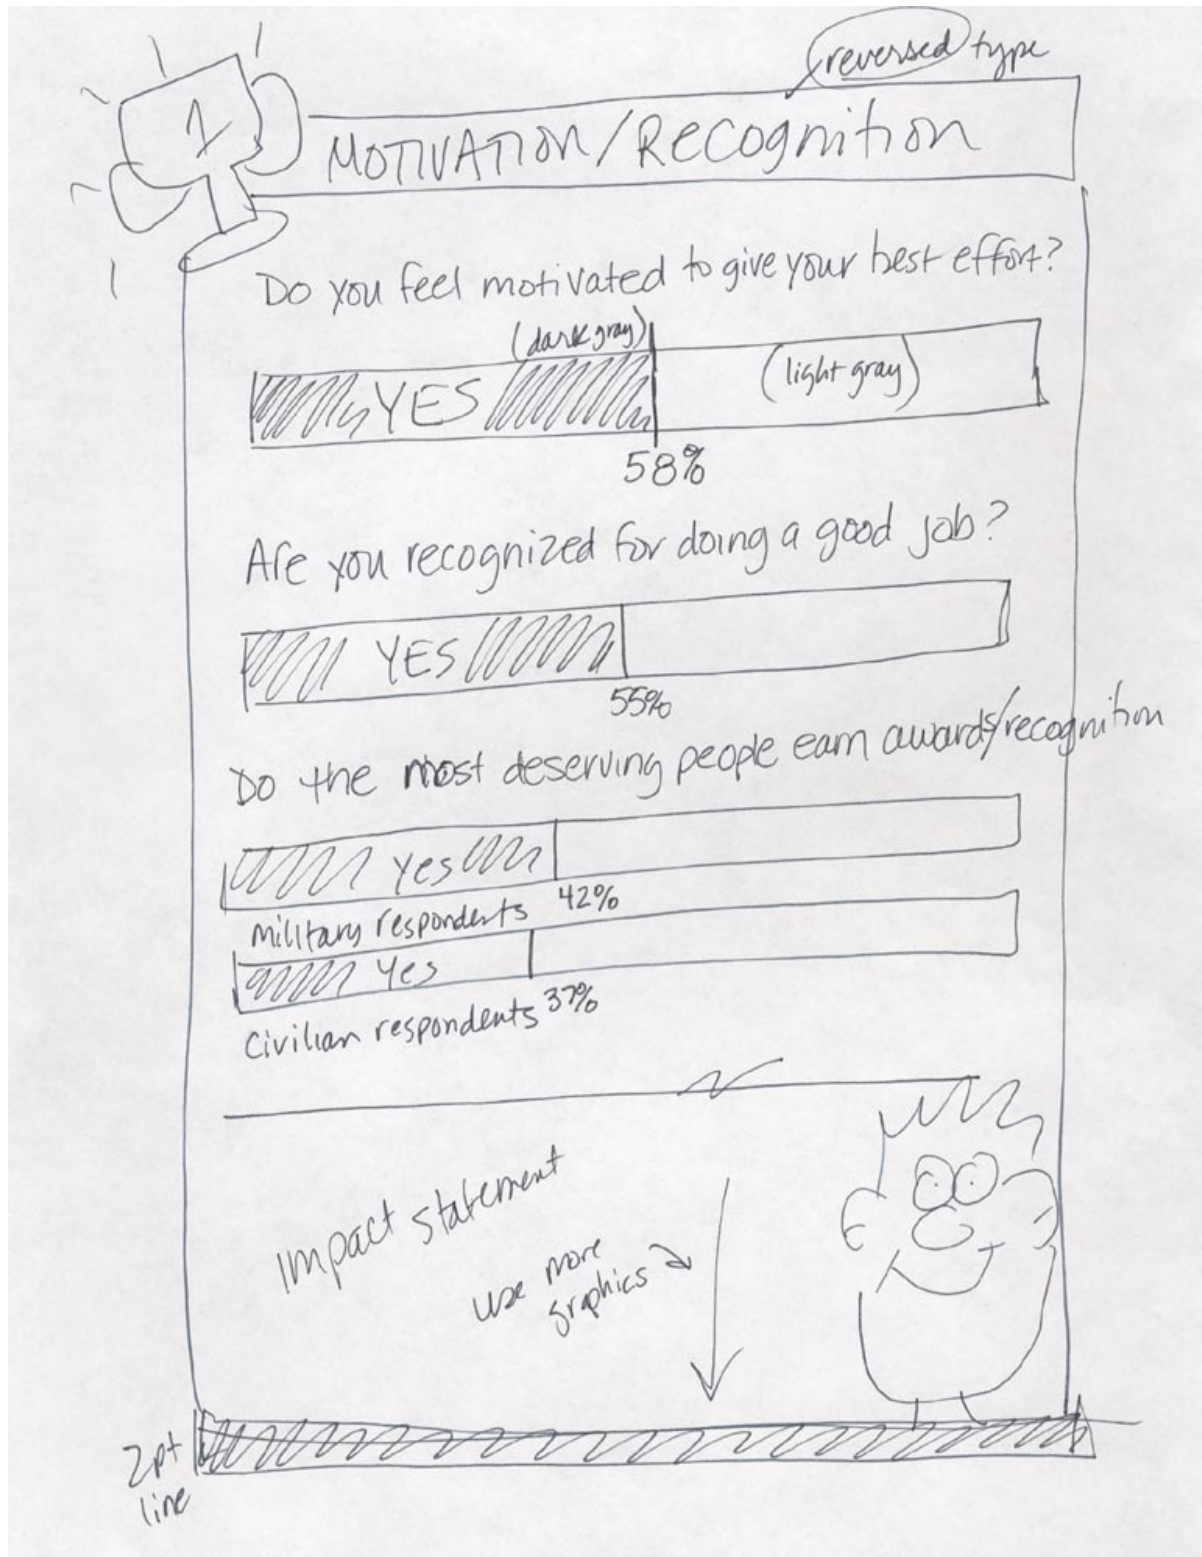 reversed type
1
MOTIVATION/Recognition
Do you feel motivated to give your best effort?
(dark gray)
YES
(light gray)
58%
Are you recognized for doing a good job?
YES
55%
Do the most deserving people earn awards/recognition
Yes
Military respondents 42%
Yes
Civilian respondents 37%
Impact statement
use more
graphics
2pt
line